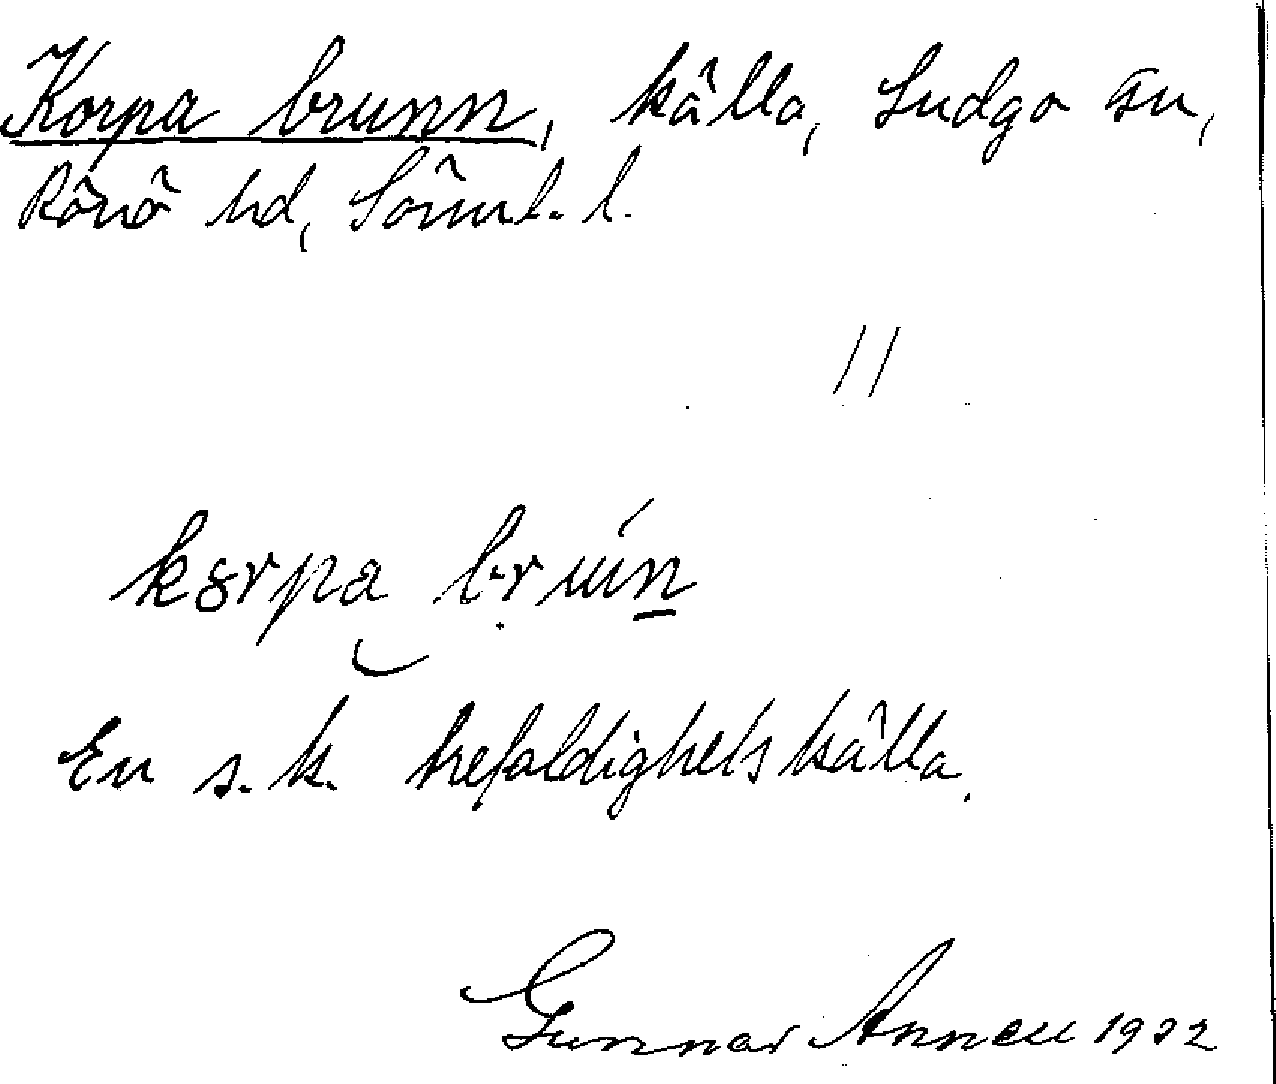 Korpa brunn, källa, Ludgo sn,
Rönö hd, Söderml. l.
11
korpa brun
En s.k. trefaldighetskälla.
Gunnar Annell 1932